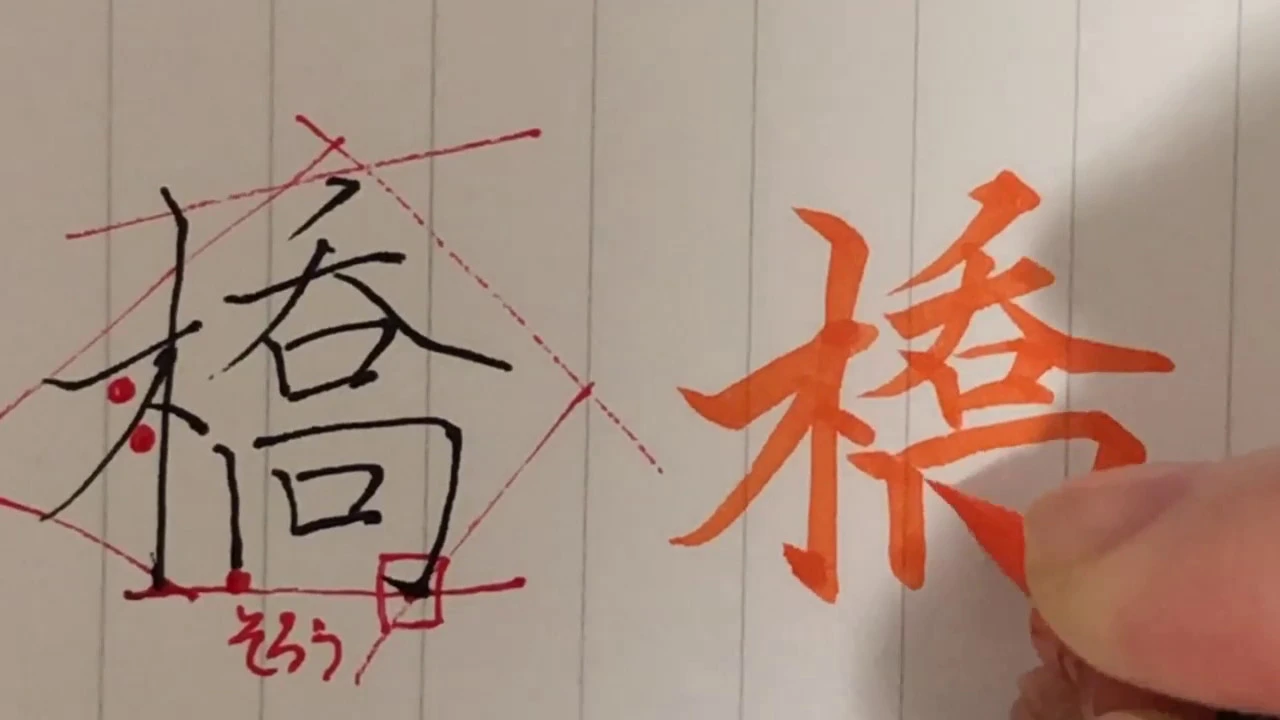 橋 橋
そろう